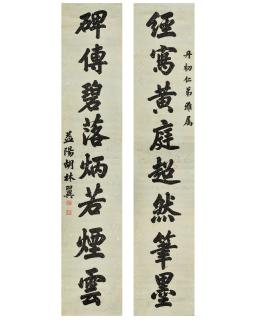 丹初仁弟雅属
經寫黃庭超然筆墨
碑傳碧落炳若煙雲
益陽胡林翼